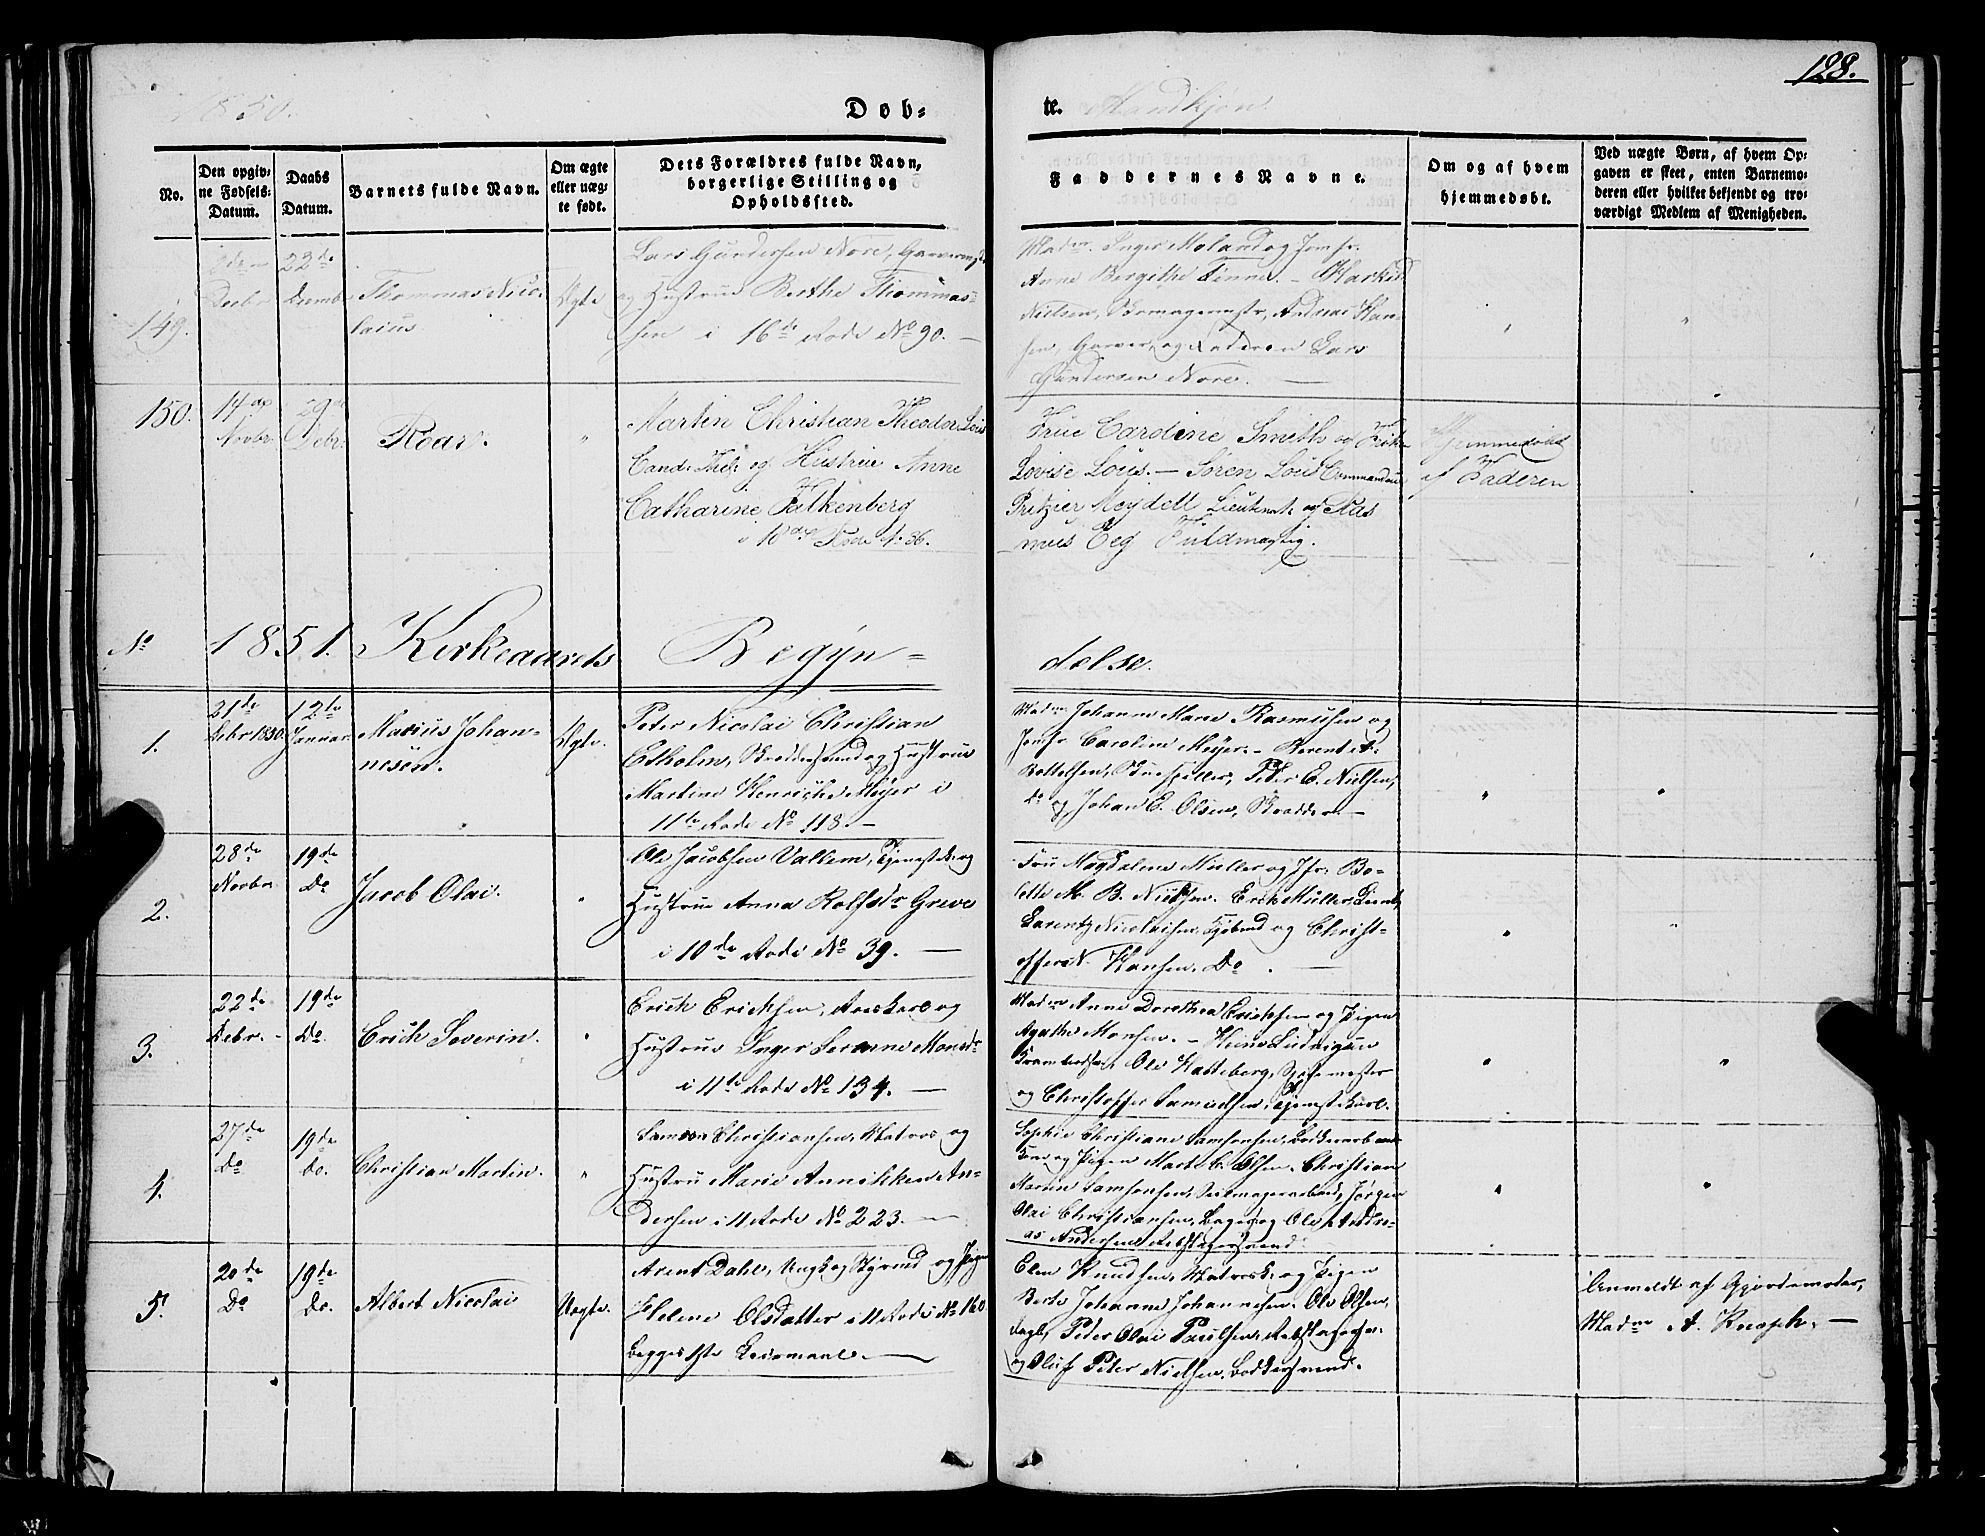 128.
1850.
Døb-
te.
Mandkjøn.
No.
Den opgiv-
ne Fødsels-
Datum.
Daabs
Datum.
Barnets fulde Navn.
Om ægte
eller uæg-
te født.
Dets Forældres fulde Navn,
borgerlige Stilling og
Opholdssted.
Faddernes Navne.
Om og af hvem
hjemmedøbt.
Ved uægte Børn, af hvem Op-
gaven er skeet, enten Barnemo-
deren eller hvilket bekjendt og tro-
værdigt Medlem af Menigheden.
149.
Decbr
22de
Thommas Nico-
laius
Ægte
Lars Gundersen Nore,
og Hustrue Berthe Thommas-
sen i 16de Rode No 90. —
Madm. Inger Moland og Jomfr.
Anne Bergithe Tinne. —
Nielsen, Skomagermstr, Andreas Han-
sen, Garver, og Faderen Lars
Gundersen Nore. —
150.
14de
Novbr.
29de
Debr.
Roar.
"
Martin Christian Theodor Lous
Cand. Theol. og Hustrue Anne
Catharine Falkenberg
i 10de Rode No 36.
Frue Cardine Smith og Frøk.
Lovise Lous. — Søren Lous Commandeur
Pritzier Meydell Lieutnat. og Ras
mus Eeg Fuldmægtig.
Hjemmedøbt
af Faderen
No
1851.
Kirkeaarets
Begyn=
delse.
1.
21de
Debr 1850.
12te
Januar.
Marius Johan-
nisen.
Ægte.
Peter Nicolai Christian
Estholm, Skreddersvend og Hustrue
Martine Henriche Meyer i
11te Rode No 118. —
Madm. Johanne Marie Rasmussen og
Jomfr. Caroline Meyer. — Berent A.
Bottolfsen, Skuespiller, Peter E. Nielsen,
Do og Johan E. Olsen, Skrædder. —
2.
28de
Novbr.
19de
Do
Jacob Olai.
"
Ole Jacobsen Valkem, Tjenestek. og
Hustrue Anna Rolfsdr Greve
i 10de Rode No 39. —
Fru Magdalene Müller og Jfr. Bo-
lette M. B. Nielsen. Erik Müller, Lieut.
Larentz Nicolaisen, Kjøbmd og Christ-
offer N. Hansen, Do. —
3.
22de
Debr. -
19de
Do.
Erich Severin.
"
Erich Erichsen, Arbskarl og
Hustrue Inger Serine Monsdr
i 11te Rode No 134. —
Madm Anne Dorothea Erichsen og Pigen
Agathe Monsen. — Hans Ludvigsen
Ole Hatteberg,
og Christoffer Samuelsen, Tjenestekarl.
4.
27de
Do
19de
Do.
Christian Martin.
"
Samson Christiansen, Matros og
Hustru Marie Annikken An-
dersen i 11 Rode No 223. —
Sophie Christiane Samsonsen, Bødkerarb.
Kone og Pigen Marte C. Olsen. Christian
Martin Samsonsen, Seilmagerarbeid, Jørgen
Olai Christiansen, Bager og Ole Andre-
as Andersen, Rebslagersvend.
5.
20de
Do
19de
Do.
Albert Nicolai
Uægte.
Arent Dahl, Ungk. og Styrmd og Pigen
Helene Olsdatter i 11 Rode No 160.
Begges 1ste Leiermaal. —
Elen Knudsen, Matrosk. og Pigen
Berte Johanne Johannesen. Ole Olsen,
Dagl. Peder Olai Paulsen, Rebslagersv.
og Oluf Peter Nielsen, Bødkersvend.
Anmeldt af Gjordemoder,
Madm A. Knoph. —